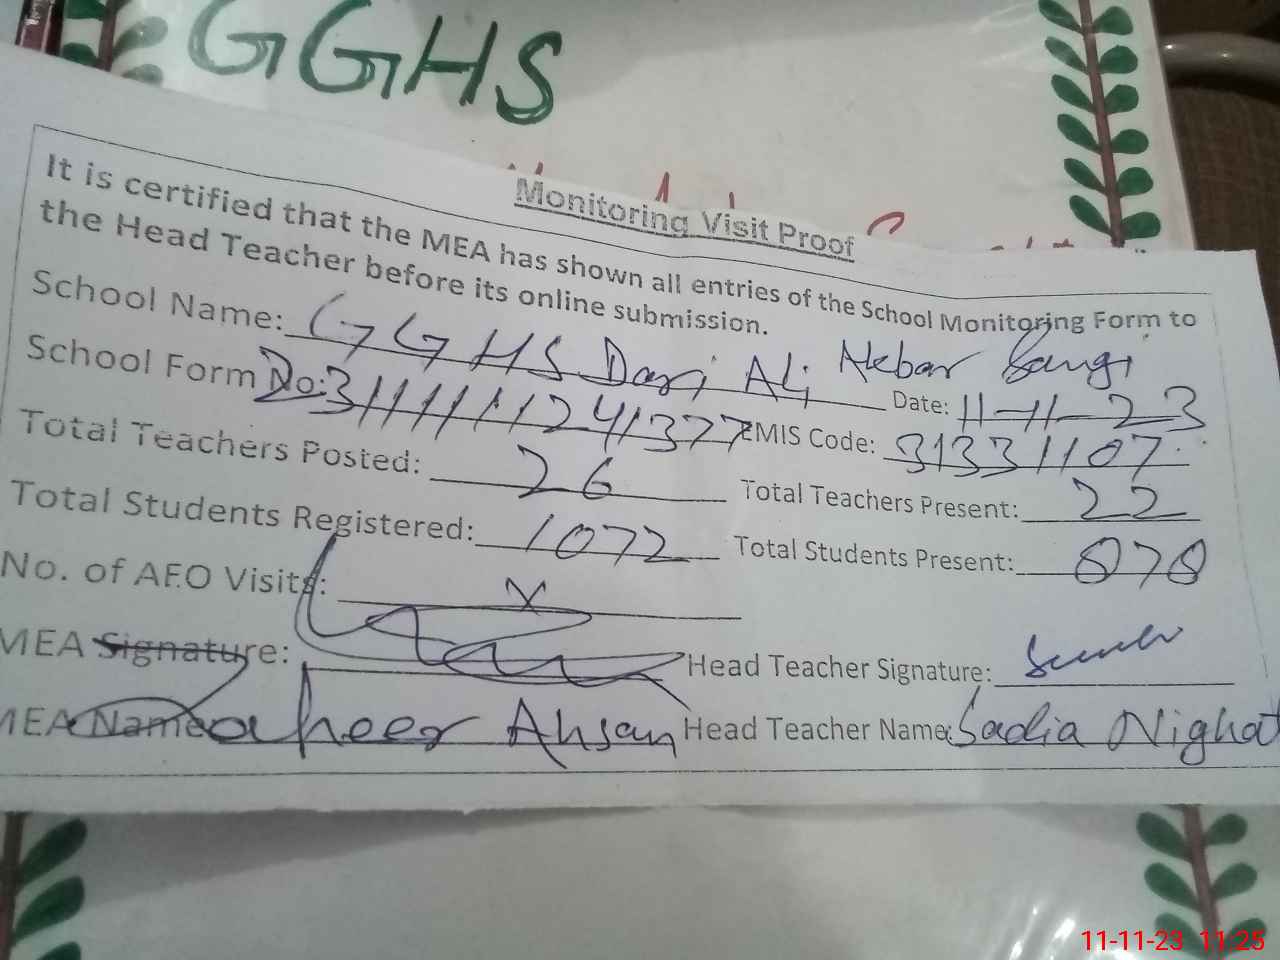 GGHS
Monitoring Visit Proof
It is certified that the MEA has shown all entries of the School Monitoring Form to
the Head Teacher before its online submission.
School Name: GGHS Dari Ali Akbar Sangi
School Form No: Date: 11-11-23
EMIS Code: 31331107
Total Teachers Posted: 26 Total Teachers Present: 22
Total Students Registered: 1072 Total Students Present: 878
No. of AEO Visits: X
MEA Signature: Head Teacher Signature:
MEA Name: Zaheer Ahsan Head Teacher Name: Sadia Nighat
11-11-23 11:25